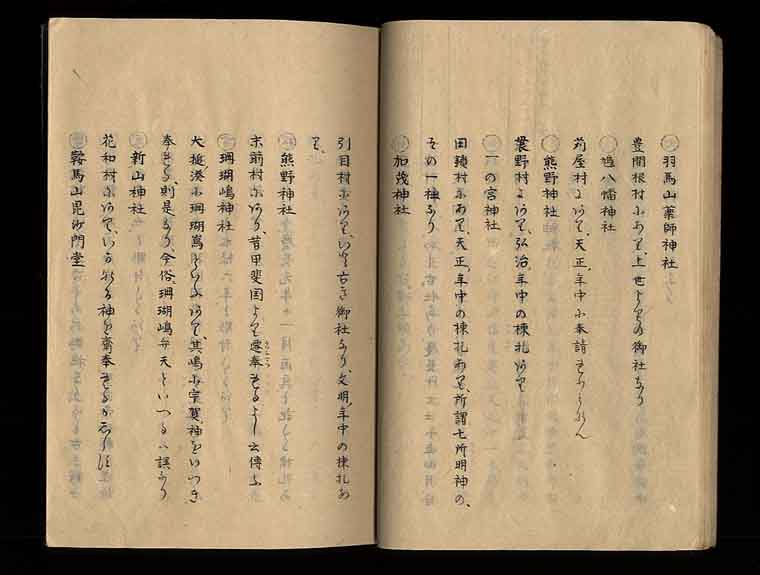 羽馬山薬師神社
豊間根村にあり、上世よりの御社なり
八幡神社
苅屋村にあり、天正年中に奉請せり
熊野神社
農野村にあり、弘治年中の棟札あり
一の宮神社
田鎖村にあり、天正年中の棟札あり、所謂七所明神の、
その一社なり
加茂神社
引目村にあり、いと古き御社なり、文明年中の棟札あ
り、
熊野神社
末前村にあり、昔甲斐国より遷奉せるよし云傳ふ
珊瑚嶋神社
大槌湊に珊瑚嶌といふあり、其嶋に宇賀神をいつき
奉る、則是なり、今俗、珊瑚嶋弁天といへるハ誤なり
新山神社
花和村にあり、いかなる神を齋奉せるか志らず
鞍馬山毘沙門堂